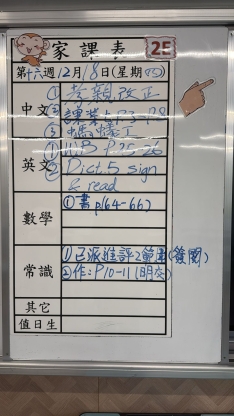 家課表 2E
第十六週12月18日(星期四)
中文 ① 孝親改正
② 課業上P.3-P.8
③ 螞蟻工
英文 ① WB P.25-26
② Dict.5 sign
& read
數學 ① 書p(64-66)
常識 ① 已派進評2範圍(簽閱)
② 作:P10-11(明交)
其它
值日生